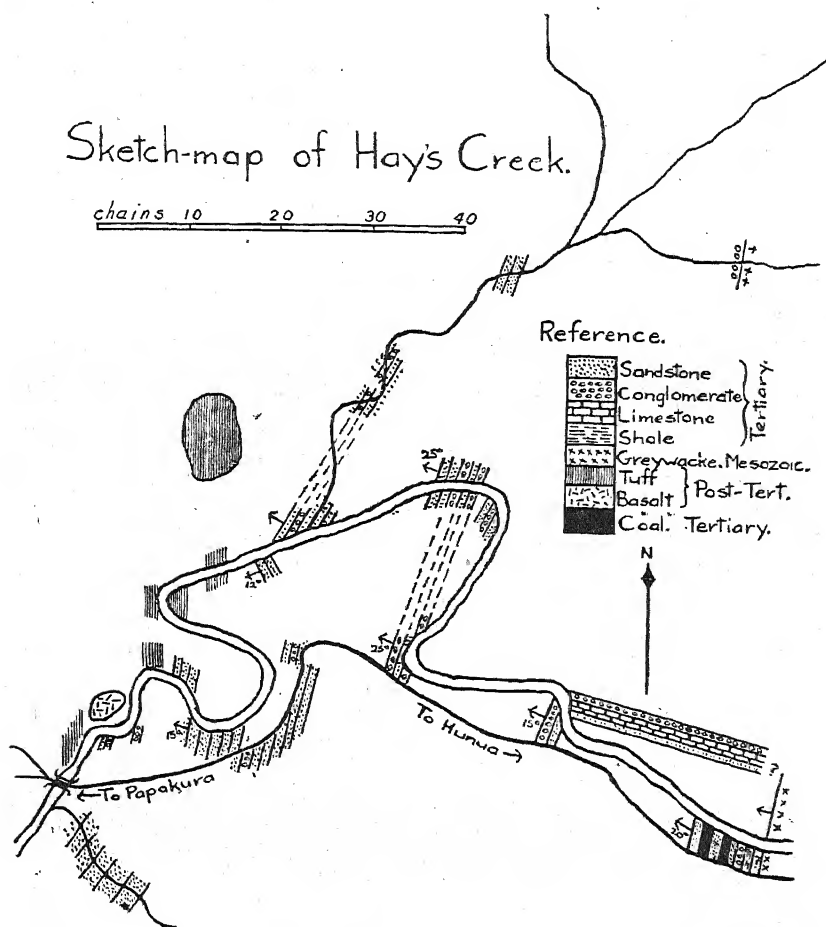 Sketch-map of Hay's Creek.
chains 10 20 30 40
Reference.
Sandstone
Conglomerate
Limestone
Shale
Tertiary.
Greywacke. Mesozoic.
Tuff
Basalt
Post-Tert.
Coal. Tertiary.
N
25°
12°
25°
15°
15°
To Hunua →
← To Papakura
?
20°